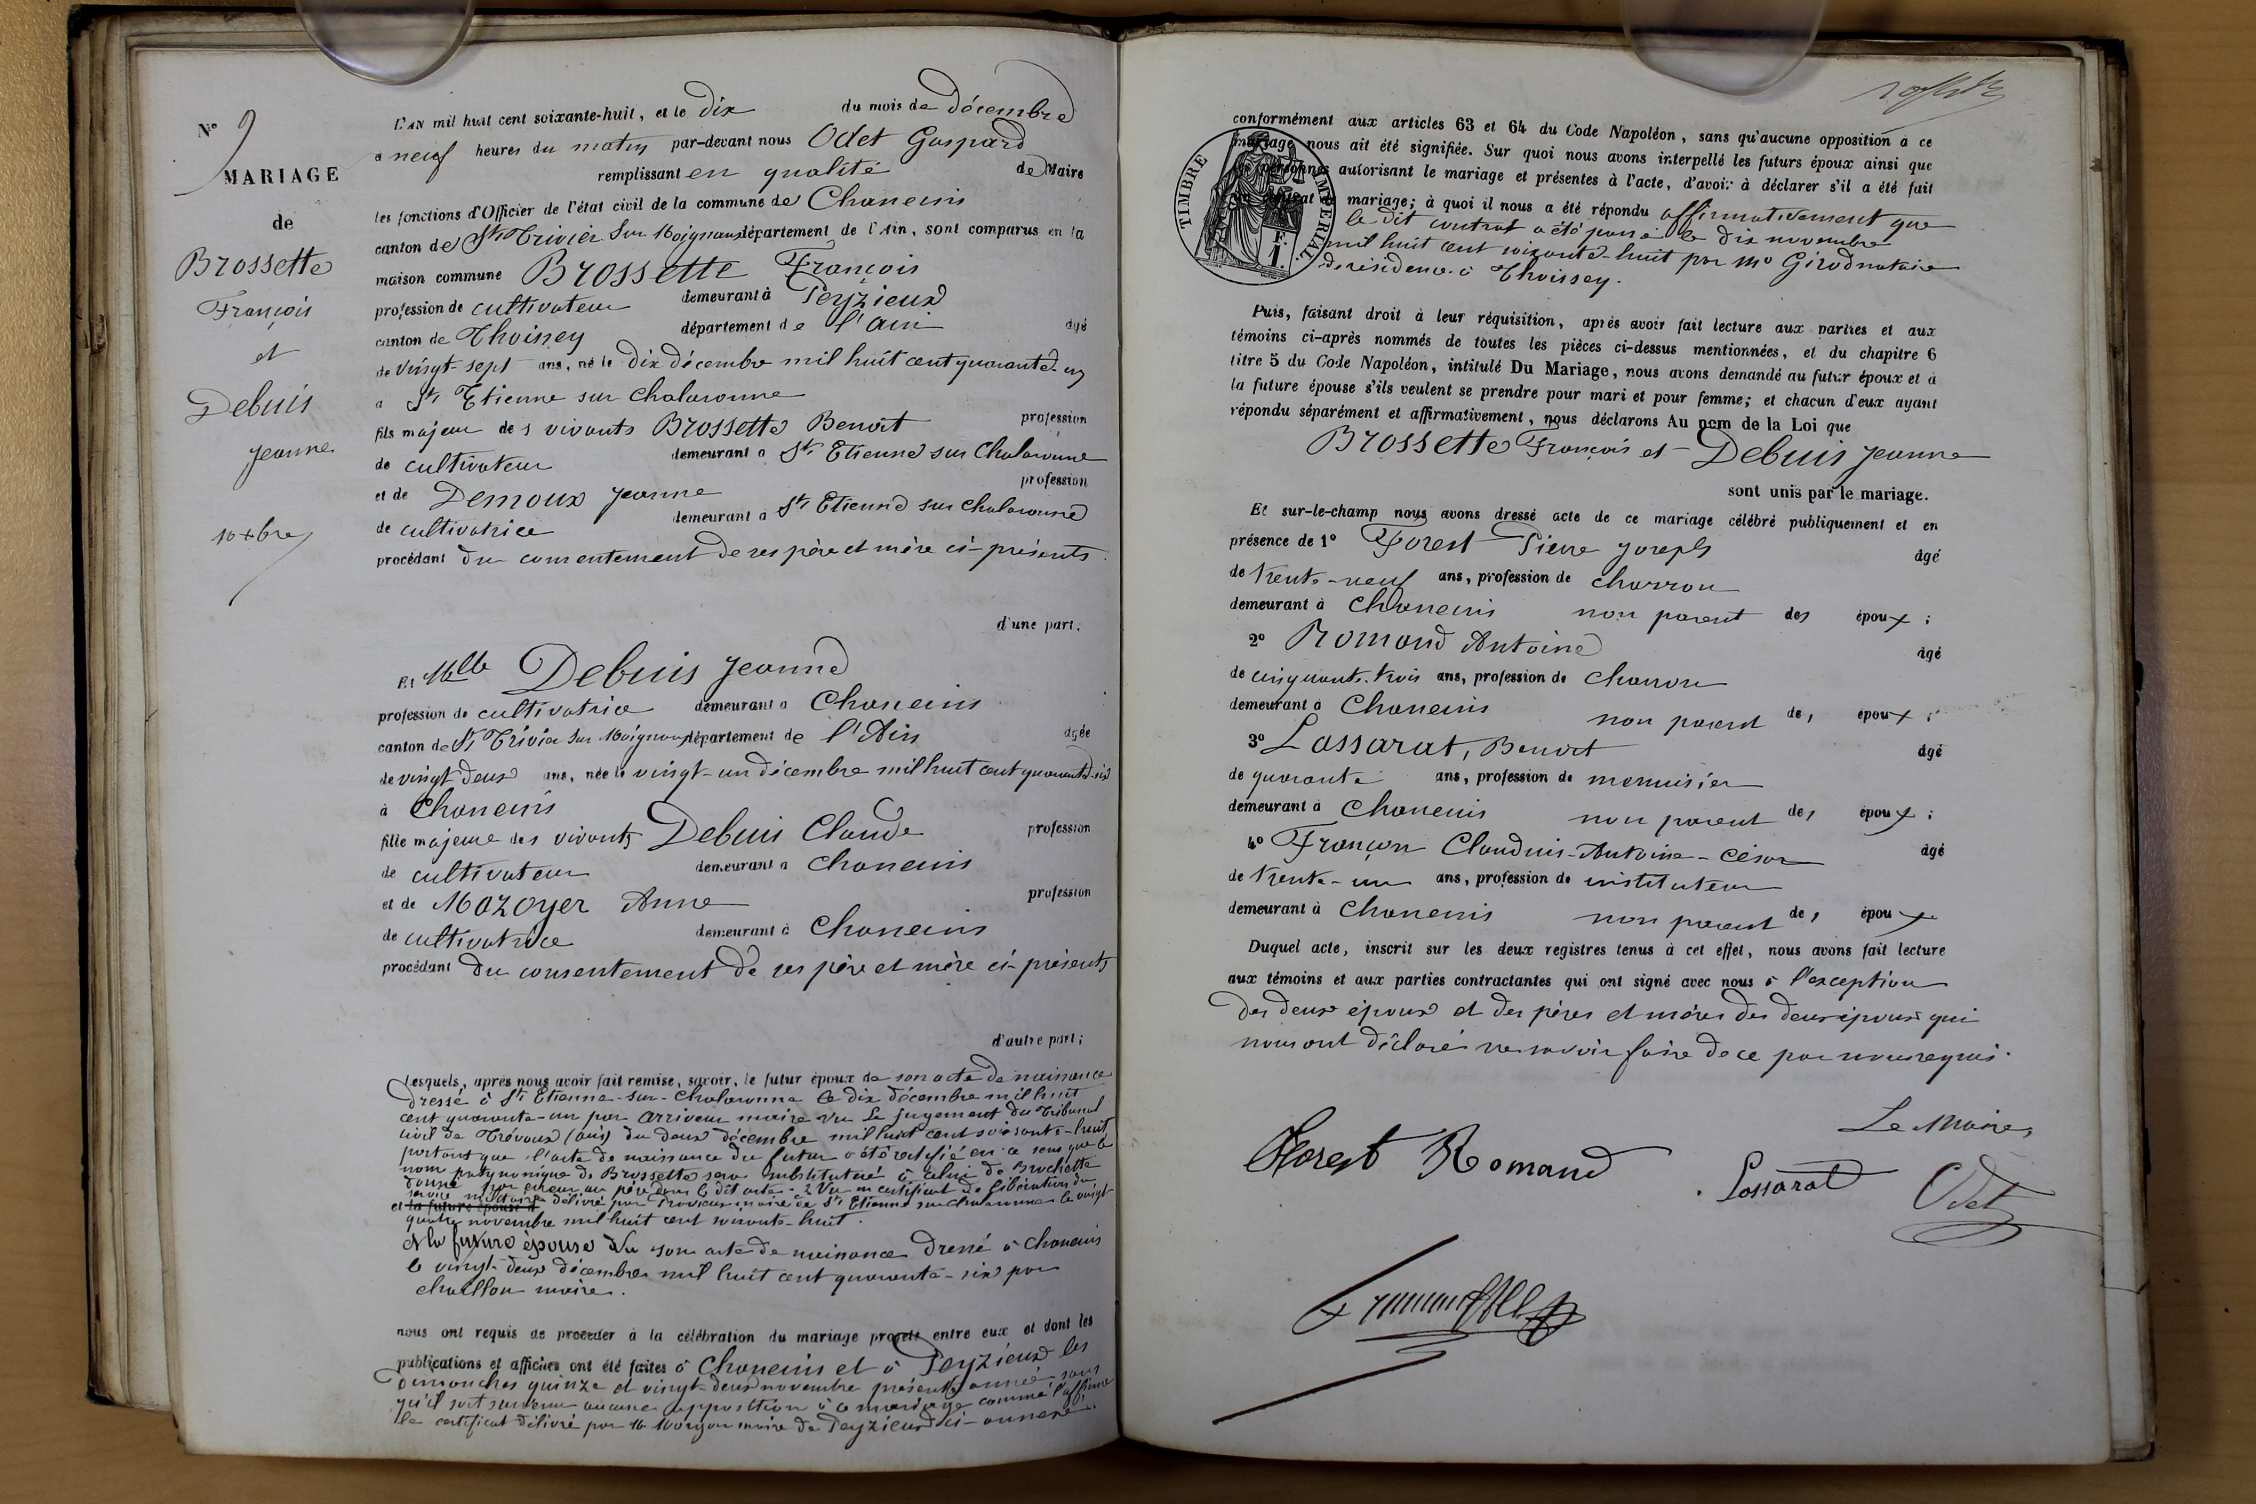 N° 9
MARIAGE
de
Brossette
François
et
Debuis
Jeanne
10 xbre
L'AN mil huit cent soixante-huit, et le dix du mois de décembre
a neuf heures du matin par-devant nous Odet Gaspard
remplissant en qualité de Maire
les fonctions d'Officier de l'état civil de la commune de Chaneins
canton de St Trivier sur Moignans département de l'Ain, sont comparus en la
maison commune Brossette François
profession de cultivateur demeurant à Peyzieux
canton de Thoissey département de l'Ain âgé
de vingt-sept ans, né le dix décembre mil huit cent quarante-un
a St Etienne sur Chalaronne
fils majeur des vivants Brossette Benoit profession
de cultivateur demeurant a St Etienne sur Chalaronne
et de Demoux Jeanne profession
de cultivatrice demeurant a St Etienne sur Chalaronne
procédant du consentement de ses père et mère ci-présents
d'une part;
Et Melle Debuis Jeanne
profession de cultivatrice demeurant a Chaneins
canton de St Trivier sur Moignans département de l'Ain âgée
de vingt deux ans, née le vingt-un décembre mil huit cent quarante-six
à Chaneins
fille majeure des vivants Debuis Claude profession
de cultivateur demeurant a Chaneins
et de Mazoyer Anne profession
de cultivatrice demeurant à Chaneins
procédant du consentement de ses père et mère ci-présents
d'autre part;
Lesquels, après nous avoir fait remise, savoir, le futur époux de son acte de naissance
dressé à St Etienne-sur-Chalaronne le dix décembre mil huit
cent quarante-un par Arriveur maire vu le jugement du Tribunal
civil de Trévoux (Ain) du deux décembre mil huit cent soixante-huit
portant que l'acte de naissance du futur a été rectifié en ce sens que le
nom patronymique de Brossette sera substitué à celui de Brochette
donné par erreur au père dans le dit acte. 2 Vu un certificat de libération du
service militaire délivré par maire de St Etienne sur Chalaronne le vingt-
et la future épouse d
quatre novembre mil huit cent soixante-huit.
et la future épouse Vu son acte de naissance dressé à Chaneins
le vingt-deux décembre mil huit cent quarante-six par
Chaillon maire.
nous ont requis de procéder à la célébration du mariage projeté entre eux et dont les
publications et affiches ont été faites à Chaneins et à Peyzieux les
dimanches quinze et vingt-deux novembre présente année sans
qu'il soit survenu aucune opposition à ce mariage comme l'affirme
le certificat délivré par Mr maire de Peyzieux ci-annexé.
conformément aux articles 63 et 64 du Code Napoléon, sans qu'aucune opposition à ce
mariage nous ait été signifiée. Sur quoi nous avons interpellé les futurs époux ainsi que
les personnes autorisant le mariage et présentes à l'acte, d'avoir à déclarer s'il a été fait
un contrat de mariage; à quoi il nous a été répondu affirmativement que
TIMBRE IMPÉRIAL
F.
1.
le dit contrat a été passé le dix novembre
mil huit cent soixante-huit par Me Girod notaire
de résidence à Thoissey.
Puis, faisant droit à leur réquisition, après avoir fait lecture aux parties et aux
témoins ci-après nommés de toutes les pièces ci-dessus mentionnées, et du chapitre 6
titre 5 du Code Napoléon, intitulé Du Mariage, nous avons demandé au futur époux et à
la future épouse s'ils veulent se prendre pour mari et pour femme; et chacun d'eux ayant
répondu séparément et affirmativement, nous déclarons Au nom de la Loi que
Brossette François et Debuis Jeanne
sont unis par le mariage.
Et sur-le-champ nous avons dressé acte de ce mariage célébré publiquement et en
présence de 1° Forest Pierre Joseph âgé
de trente-neuf ans, profession de charron
demeurant à Chaneins non parent des époux;
2° Romand Antoine âgé
de cinquante-trois ans, profession de charron
demeurant à Chaneins non parent des époux;
3° Lassarat, Benoit âgé
de quarante ans, profession de menuisier
demeurant à Chaneins non parent des époux;
4° Françon Claudius-Antoine-César âgé
de trente-un ans, profession de instituteur
demeurant à Chaneins non parent des époux
Duquel acte, inscrit sur les deux registres tenus à cet effet, nous avons fait lecture
aux témoins et aux parties contractantes qui ont signé avec nous à l'exception
des deux époux et des pères et mères des deux époux qui
nous ont déclaré ne savoir faire de ce par nous requis.
Le Maire,
Forest Romand Lassarat Odet